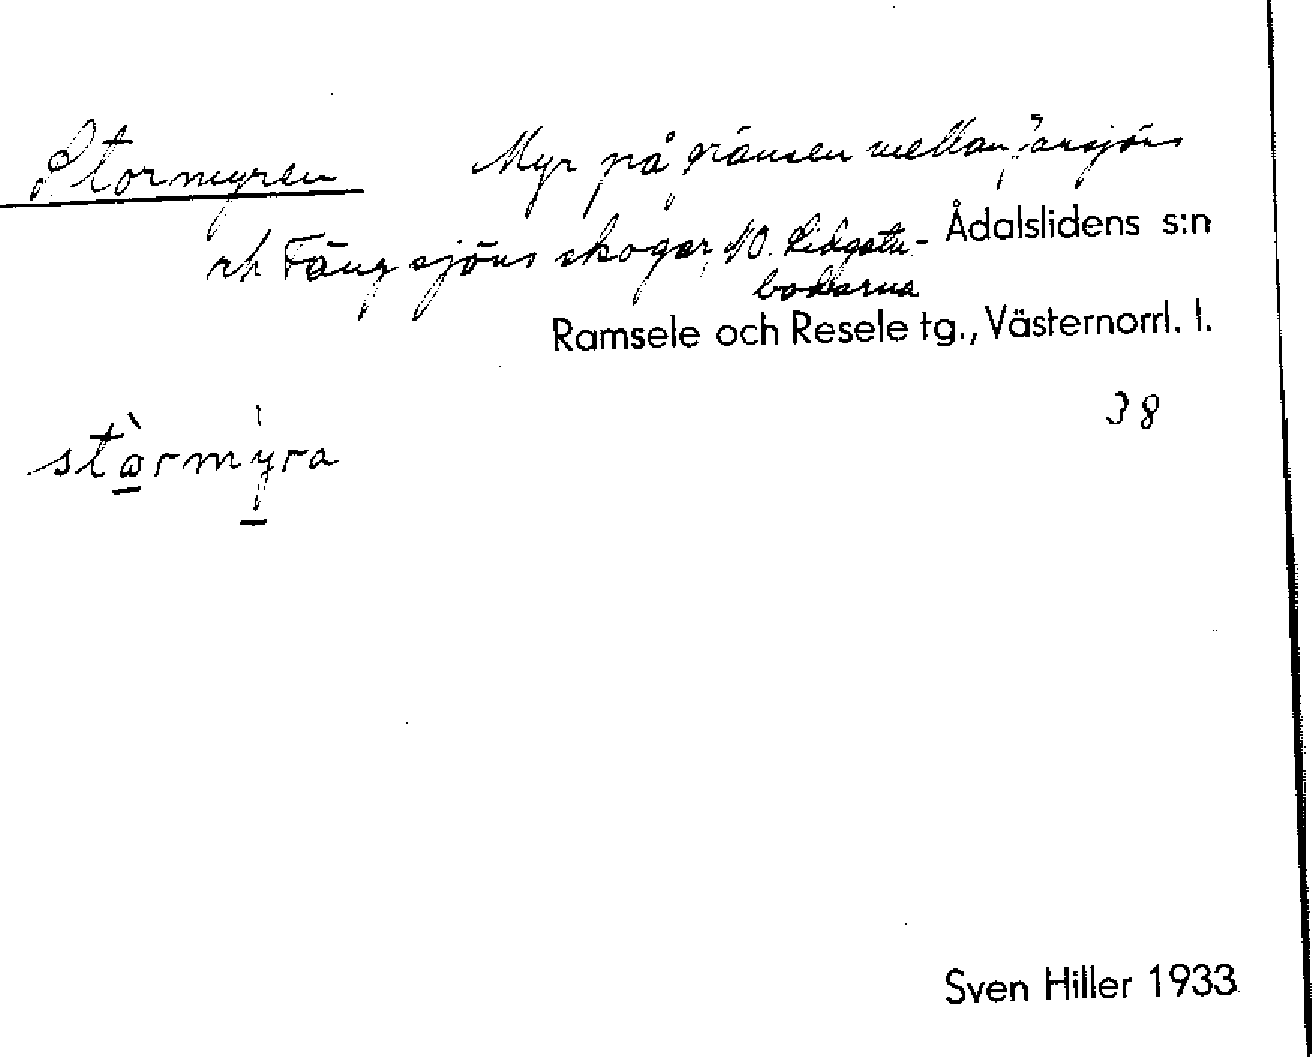 Stormyren Myr på gränsen mellan Jansjöns
och Fängsjöns skogar, NO.
bodarna
Ådalslidens s:n
Ramsele och Resele tg., Västernorrl. l.
38
stòrmyra
Sven Hiller 1933